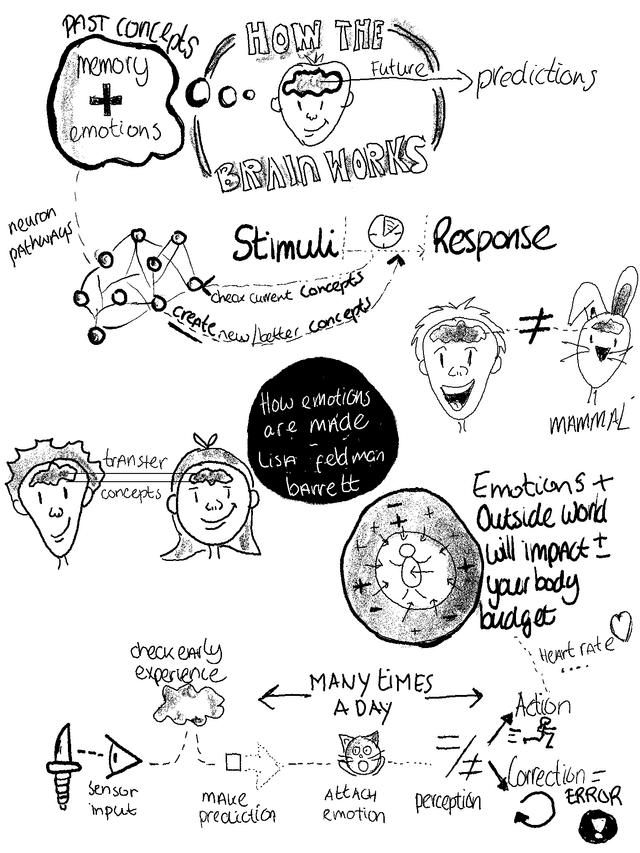 PAST CONCEPTS
memory
+
emotions
HOW THE
BRAIN WORKS
Future
predictions
neuron
pathways
Stimuli
Response
check current concepts
create new/better concepts
≠
MAMMAL
How emotions
are made
-
Lisa feldman
barrett
transfer
concepts
Emotions +
Outside world
will impact ±
your body
budget
Heart rate
....
check early
experience
MANY TIMES
A DAY
sensor
input
make
prediction
ATTACH
emotion
=/≠
perception
Action
Correction =
ERROR
!